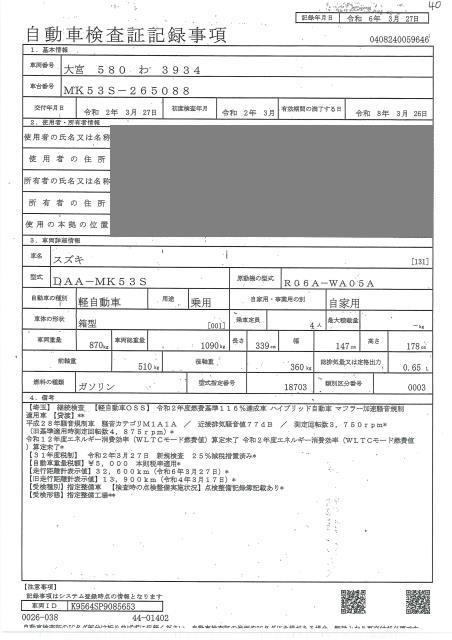 40
記録年月日 令和 6年 3月 27日
自動車検査証記録事項
0408240059646
1. 基本情報
車両番号 大宮 580 わ 3934
車台番号 MK53S-265088
交付年月日 令和 2年 3月 27日 初度検査年月 令和 2年 3月 有効期間の満了する日 令和 8年 3月 26日
2. 使用者・所有者情報
使用者の氏名又は名称
使用者の住所
所有者の氏名又は名称
所有者の住所
使用の本拠の位置
3. 車両詳細情報
車名 スズキ [131]
型式 DAA-MK53S 原動機の型式 R06A-WA05A
自動車の種別 軽自動車 用途 乗用 自家用・事業用の別 自家用
車体の形状 箱型 [001] 乗車定員 4人 最大積載量 -kg
車両重量 870kg 車両総重量 1090kg 長さ 339cm 幅 147cm 高さ 178cm
前軸重 510kg 後軸重 360kg 総排気量又は定格出力 0.65 L
燃料の種類 ガソリン 型式指定番号 18703 類別区分番号 0003
4. 備考
【埼玉】 継続検査 【軽自動車OSS】 令和2年度燃費基準116%達成車 ハイブリッド自動車 マフラー加速騒音規制
適用車 【貸渡】**
平成28年騒音規制車 騒音カテゴリM1A1A / 近接排気騒音値77dB / 測定回転数3,750rpm*
(旧基準適用時測定回転数4,875rpm)*
令和12年度エネルギー消費効率(WLTCモード燃費値)算定未了 令和2年度エネルギー消費効率(WLTCモード燃費値
)算定未了*
【31年度税制】 令和2年3月27日 新規検査 25%減税措置済み*
【自動車重量税額】¥5,000 本則税率適用*
【走行距離計表示値】32,600km(令和6年3月27日)*
【旧走行距離計表示値】13,900km(令和4年3月17日)*
【受検種別】指定整備車 【検査時の点検整備実施状況】点検整備記録簿記載あり*
【受検形態】指定整備工場**
【注意事項】
記録事項はシステム登録時点の情報となります
車両ID K9564SP9085653
0026-038 44-01402